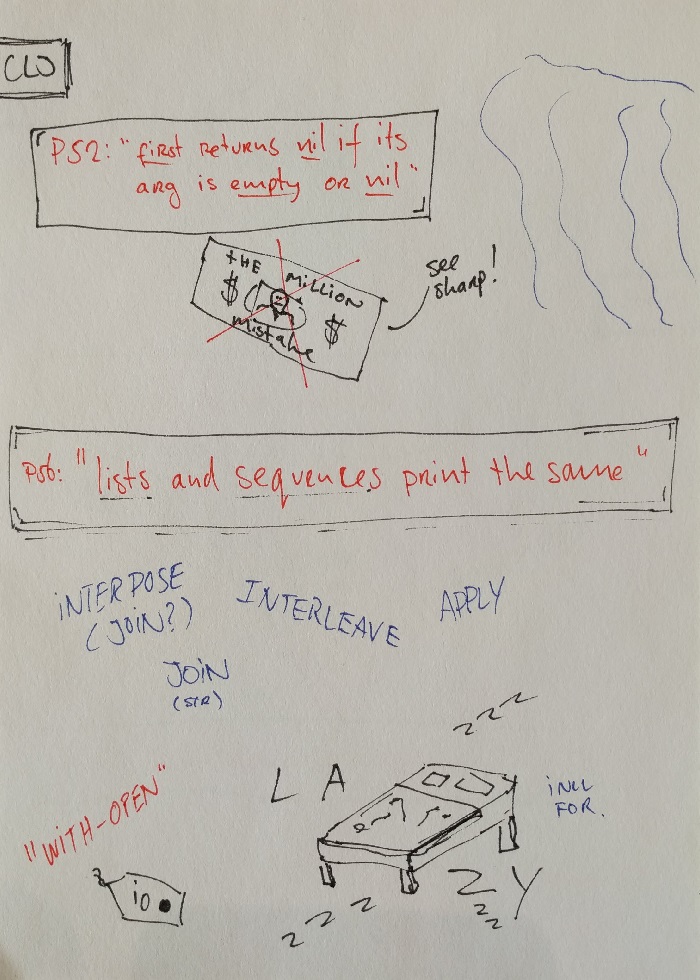 CLJ
P52: "first returns nil if its
arg is empty or nil"
THE MILLION
$ $
mistake
see
sharp!
P56: "lists and sequences print the same"
INTERPOSE
(JOIN?)
INTERLEAVE
APPLY
JOIN
(STR)
z z z
L A Z Y
INCL
FOR.
"WITH-OPEN"
io
z z z
z
z